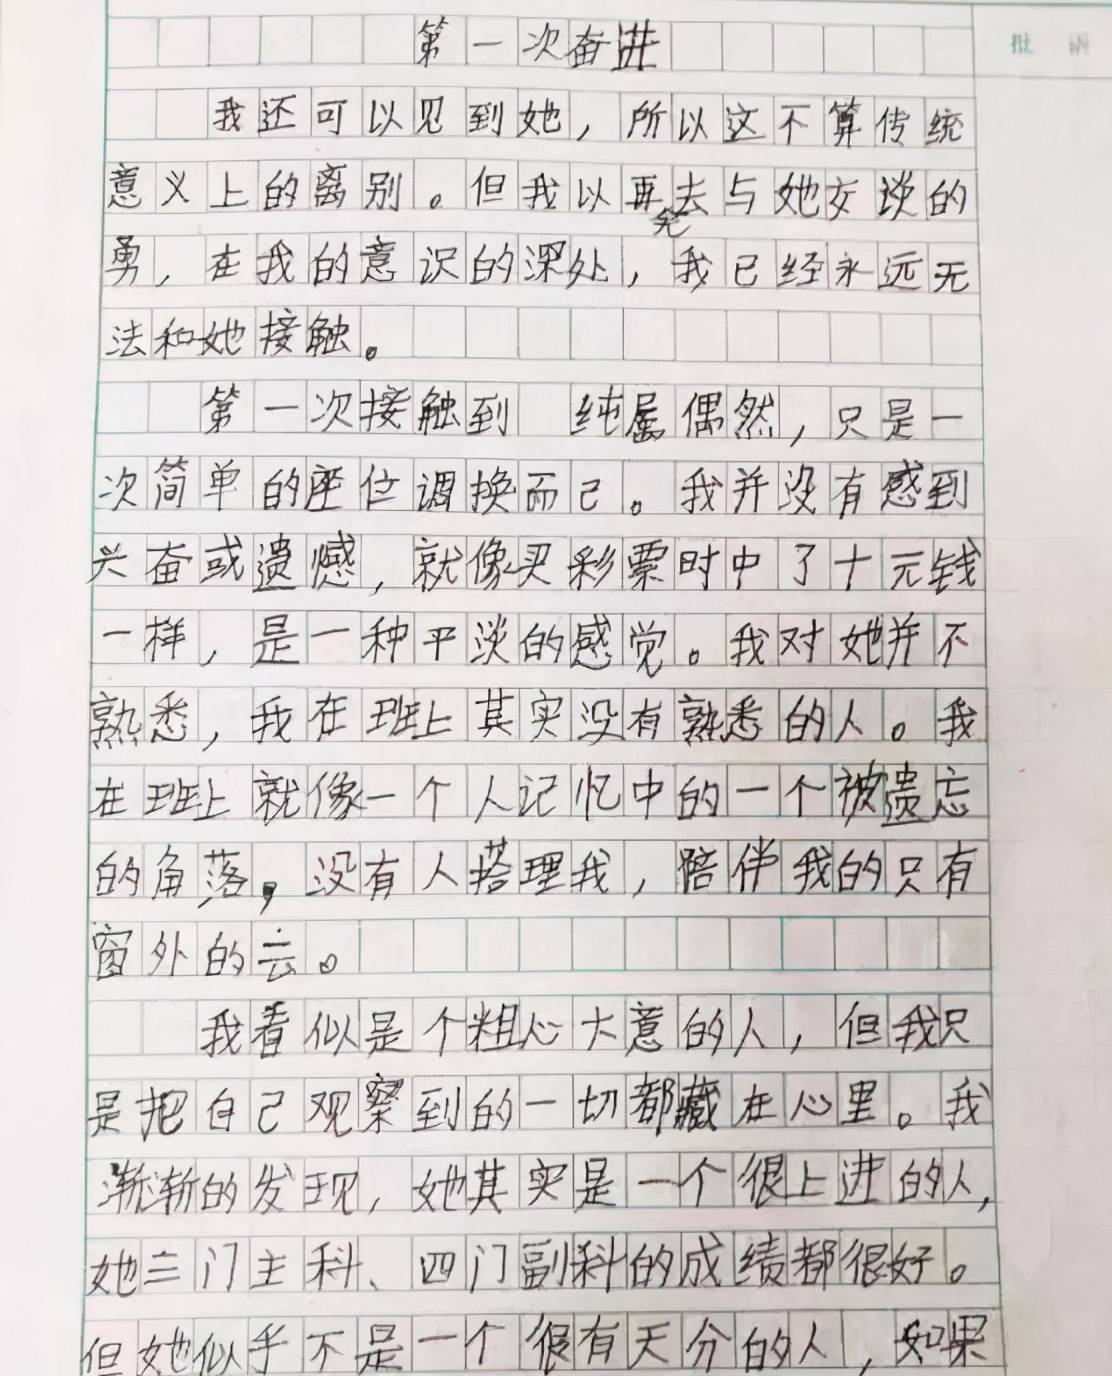 第一次奋进
批语
我还可以见到她，所以这不算传统
意义上的离别。但我以再无去与她交谈的
勇，在我的意识的深处，我已经永远无
法和她接触。
第一次接触到 纯属偶然，只是一
次简单的座位调换而己。我并没有感到
兴奋或遗憾，就像买彩票时中了十元钱
一样，是一种平淡的感觉。我对她并不
熟悉，我在班上其实没有熟悉的人。我
在班上就像一个人记忆中的一个被遗忘
的角落，没有人搭理我，陪伴我的只有
窗外的云。
我看似是个粗心大意的人，但我只
是把自己观察到的一切都藏在心里。我
渐渐的发现，她其实是一个很上进的人，
她三门主科、四门副科的成绩都很好。
但她似乎不是一个很有天分的人，如果